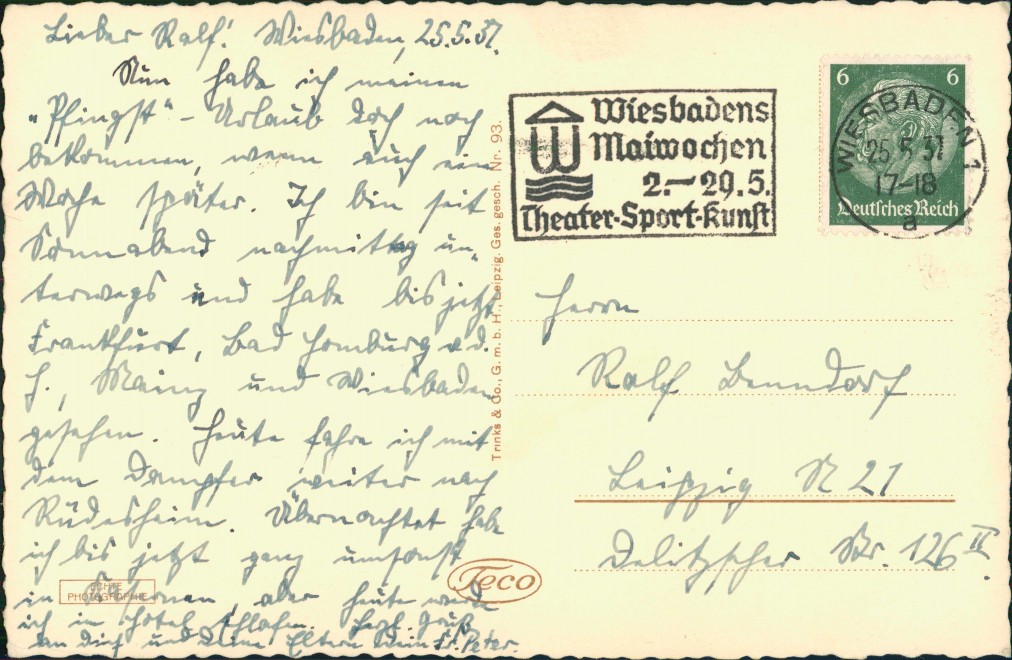 Lieber Ralf! Wiesbaden, 25.5.37.
Nun habe ich meinen
„Pfingst“-Urlaub doch noch
bekommen, wenn auch eine
Woche später. Ich bin seit
Sonnabend nachmittag un-
terwegs und habe bis jetzt
Frankfurt, Bad Homburg v.d.
H., Mainz und Wiesbaden
gesehen. Heute fahre ich mit
dem Dampfer weiter nach
Rüdesheim. Übernachtet habe
ich bis jetzt ganz umsonst
in Kasernen, aber heute werde
ich in Hotel schlafen. Herzl. Grüße
an dich und deine Eltern Dein Fr. Peter.
ECHTE
PHOTOGRAPHIE
Trinks & Co., G. m. b. H., Leipzig. Ges. gesch. Nr. 93.
Teco
Wiesbadens
Maiwochen
2.–29.5.
Theater-Sport-Kunst
6 6
Deutsches Reich
WIESBADEN 1
25.5.37
17-18
a
Herrn
Ralf Benndorf
Leipzig N 21
Delitzscher Str. 126 II.